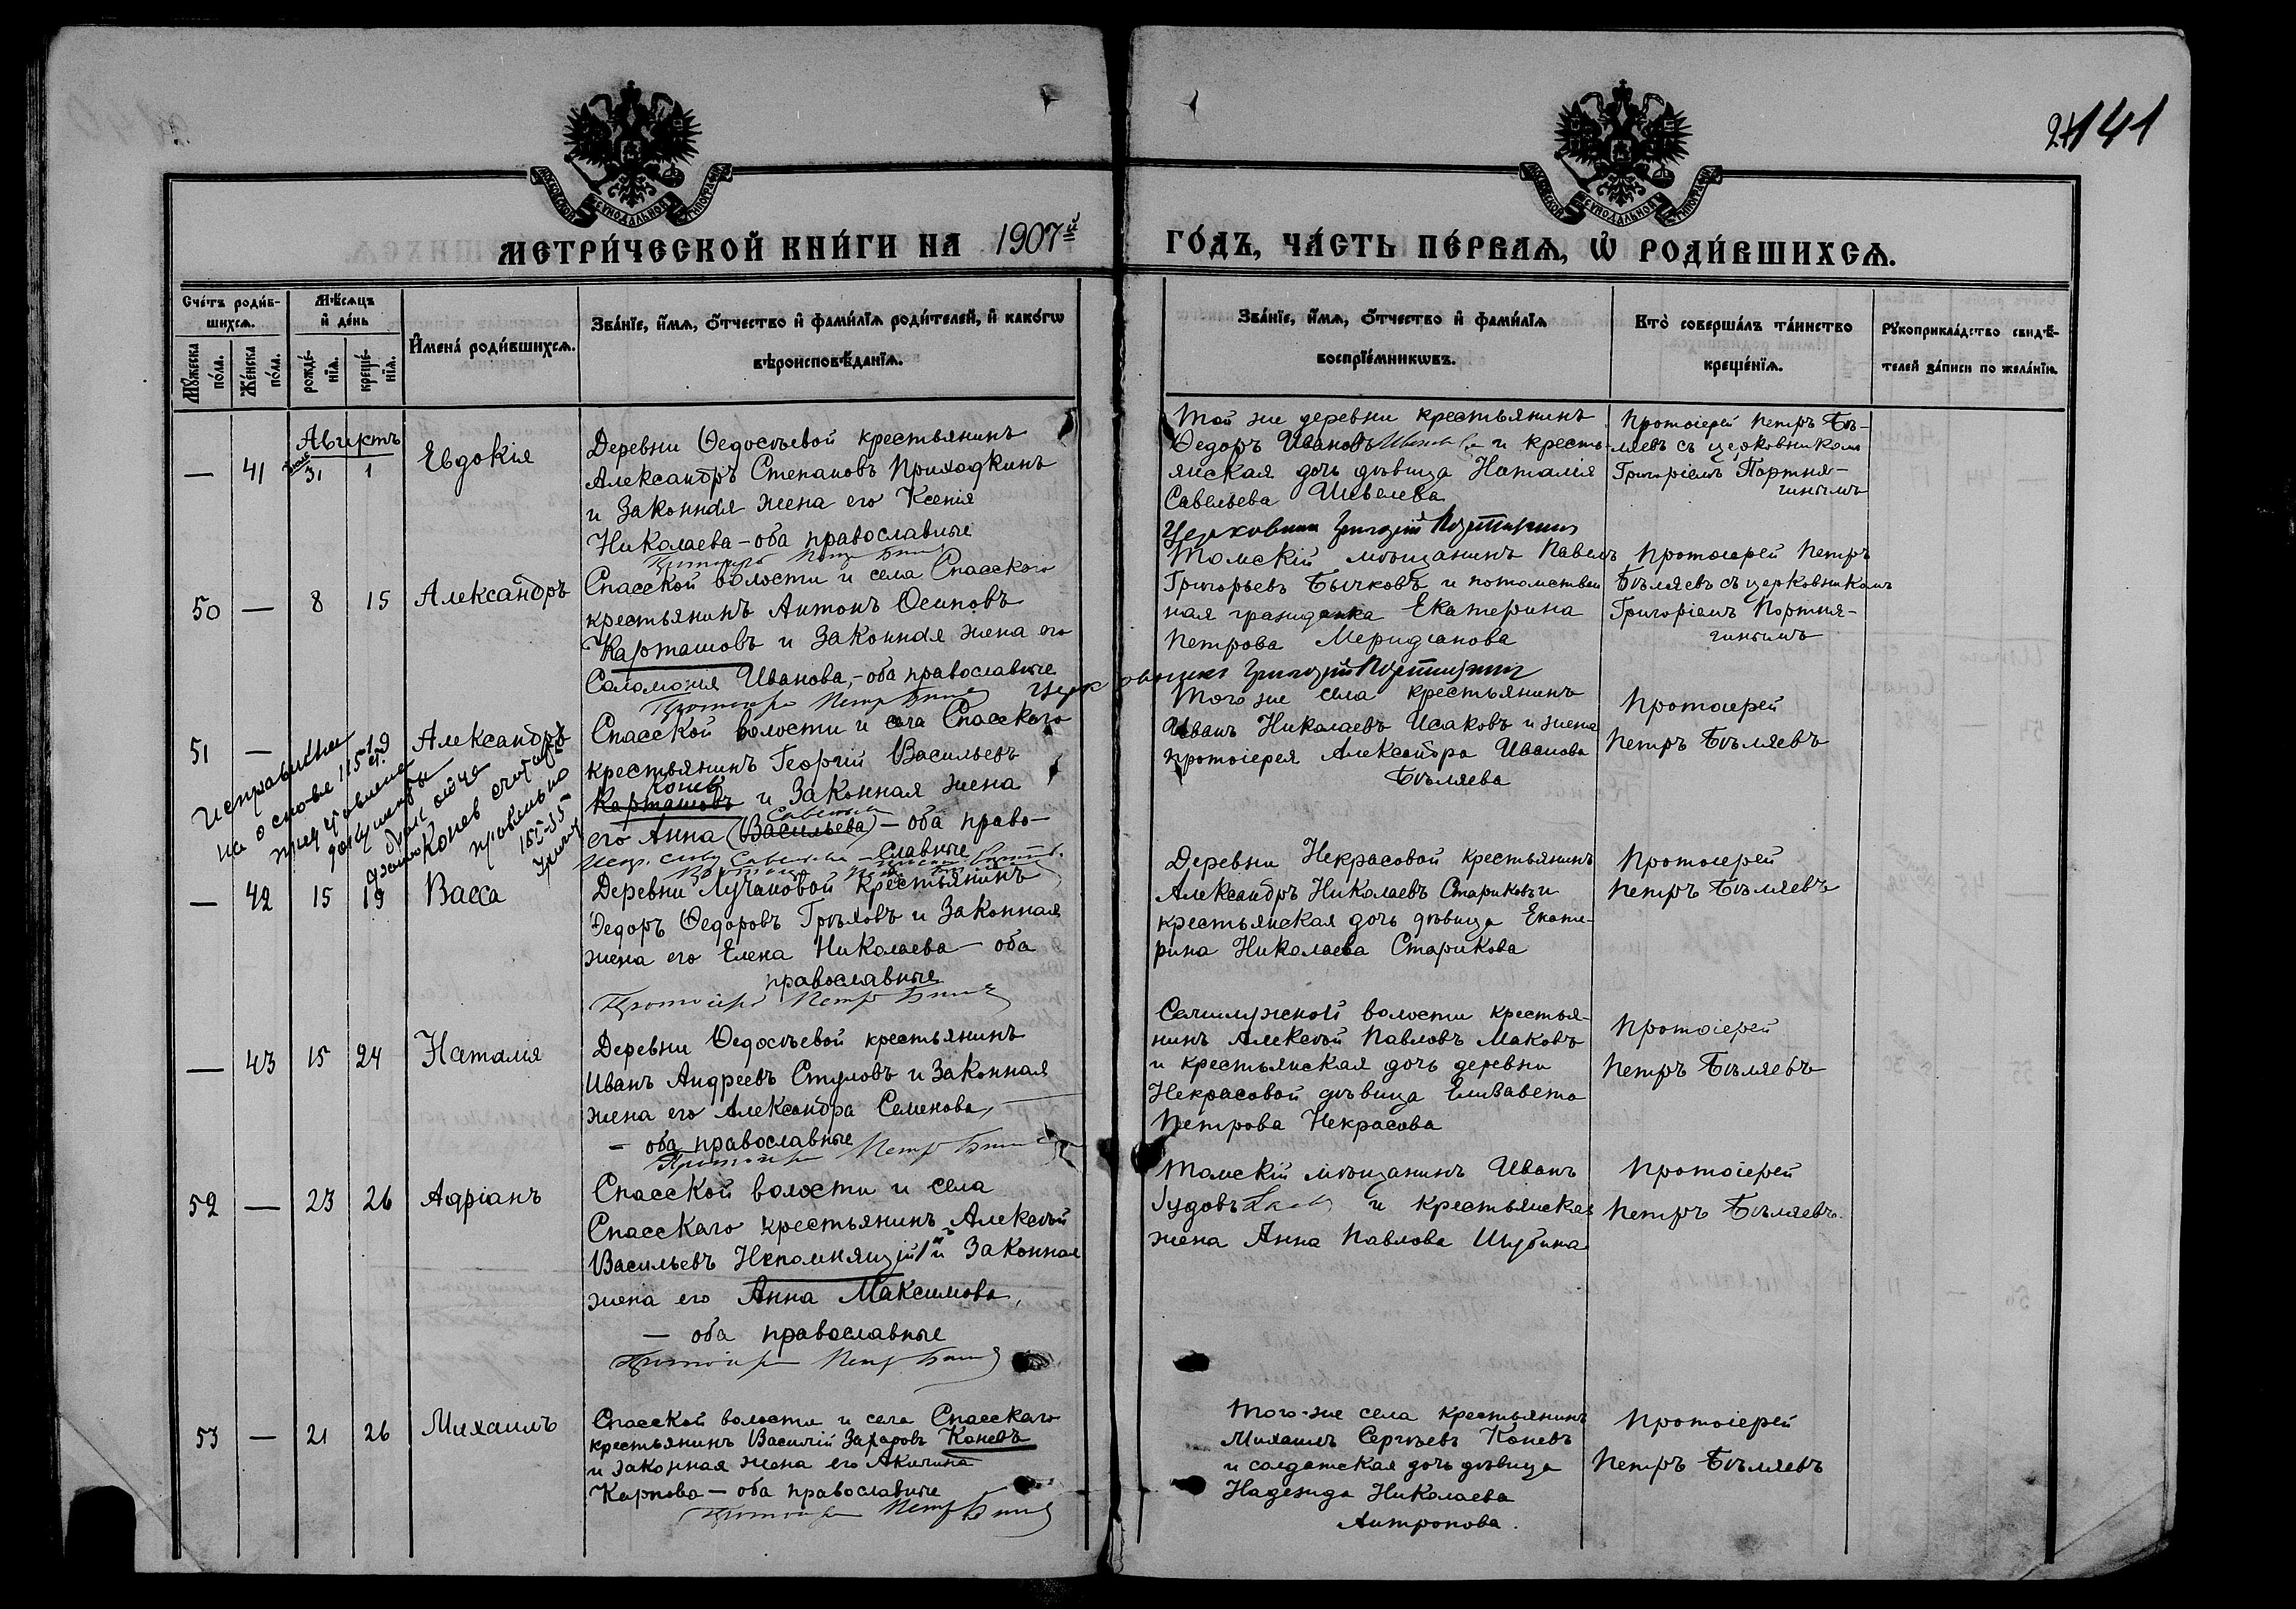 141
МОСКОВСКОЙ СѴНОДАЛЬНОЙ ТИПОГРАФІИ
МОСКОВСКОЙ СѴНОДАЛЬНОЙ ТИПОГРАФІИ
МЕТРИ́ЧЕСКОЙ КНИ́ГИ НА 1907й
ГО́ДЪ, ЧА́СТЬ ПЕ́РВАѦ, Ѡ҆ РОДИ́ВШИХСѦ.
Сче́тъ роди́в-
шихсѧ.
Мꙋ́жеска по́ла.
Же́нска по́ла.
Мѣ́сѧцъ
и҆ де́нь
рожде́-
нїѧ.
креще́-
нїѧ.
И҆мена̀ роди́вшихсѧ.
Зва́нїе, и҆́мѧ, ѻ҆́тчество и҆ фами́лїѧ роди́телей, и҆ како́гѡ
вѣроисповѣ́данїѧ.
Зва́нїе, и҆́мѧ, ѻ҆́тчество и҆ фами́лїѧ
воспрїе́мникѡвъ.
Кто̀ соверша́лъ та́инство
креще́нїѧ.
Рꙋкоприкла́дство свидѣ́-
телей за́писи по жела́нїю.
Августъ
— 41 31 1 Евдокія
Деревни Ѳедосѣевой крестьянинъ
Александръ Степановъ Приходкинъ
и законная жена его Ксенія
Николаева – оба православные
Той же деревни крестьянинъ
Ѳедоръ Ивановъ и кресть-
янская дочь дѣвица Наталія
Савельева Шевелева
Протоіерей Петръ Бѣ-
ляевъ съ церковникомъ
Григоріемъ Портня-
гинымъ
Церковникъ Григорій Портнягинъ
Протоіерей Петръ Бѣляевъ
50 — 8 15 Александръ
Спасской волости и села Спасского
крестьянинъ Антонъ Осиповъ
Карташовъ и законная жена его
Саломонія Иванова, – оба православные
Томскій мѣщанинъ Павелъ
Григорьевъ Бычковъ и потомствен
ная гражданка Екатерина
Петрова Меридіанова
Протоіерей Петръ
Бѣляевъ съ церковникомъ
Григоріемъ Портня-
гинымъ
Церковникъ Григорій Портнягинъ
Протоіерей Петръ Бѣляевъ
51 — 19 Александръ
Спасской волости и села Спасского
крестьянинъ Георгій Васильевъ
Конев
Карташовъ и законная жена
его Анна (Васильева) – оба право-
славные
Исправление
на основе
Конев считать
правильно
Того же села крестьянинъ
Иванъ Николаевъ Исаковъ и жена
протоіерея Александра Иванова
Бѣляева
Протоіерей
Петръ Бѣляевъ
— 42 15 19 Васса
Деревни Лучановой крестьянинъ
Ѳедоръ Ѳедоровъ Грѣховъ и законная
жена его Елена Николаева – оба
православные
Протоіерей Петръ Бѣляевъ
Деревни Некрасовой крестьянинъ
Александръ Николаевъ Стариковъ и
крестьянская дочь дѣвица Екате-
рина Николаева Старикова
Протоіерей
Петръ Бѣляевъ
— 43 15 24 Наталія
Деревни Ѳедосѣевой крестьянинъ
Иванъ Андреевъ Стуловъ и законная
жена его Александра Семенова,
– оба православные
Протоіерей Петръ Бѣляевъ
волости крестья-
нинъ Алексѣй Павловъ Маковъ
и крестьянская дочь деревни
Некрасовой дѣвица Елизавета
Петрова Некрасова
Протоіерей
Петръ Бѣляевъ
52 — 23 26 Адріанъ
Спасской волости и села
Спасскаго крестьянинъ Алексѣй
Васильевъ Непомнящій и законная
жена его Анна Максимова,
– оба православные
Протоіерей Петръ Бѣляевъ
Томскій мѣщанинъ Иванъ
Гудовъ и крестьянская
жена Анна Павлова Шубина
Протоіерей
Петръ Бѣляевъ.
53 — 21 26 Михаилъ
Спасской волости и села Спасскаго
крестьянинъ Василій Захаровъ Коневъ
и законная жена его Акилина
Карпова – оба православные
Протоіерей Петръ Бѣляевъ
Того-же села крестьянинъ
Михаилъ Сергѣевъ Коневъ
и солдатская дочь дѣвица
Надежда Николаева
Антропова.
Протоіерей
Петръ Бѣляевъ